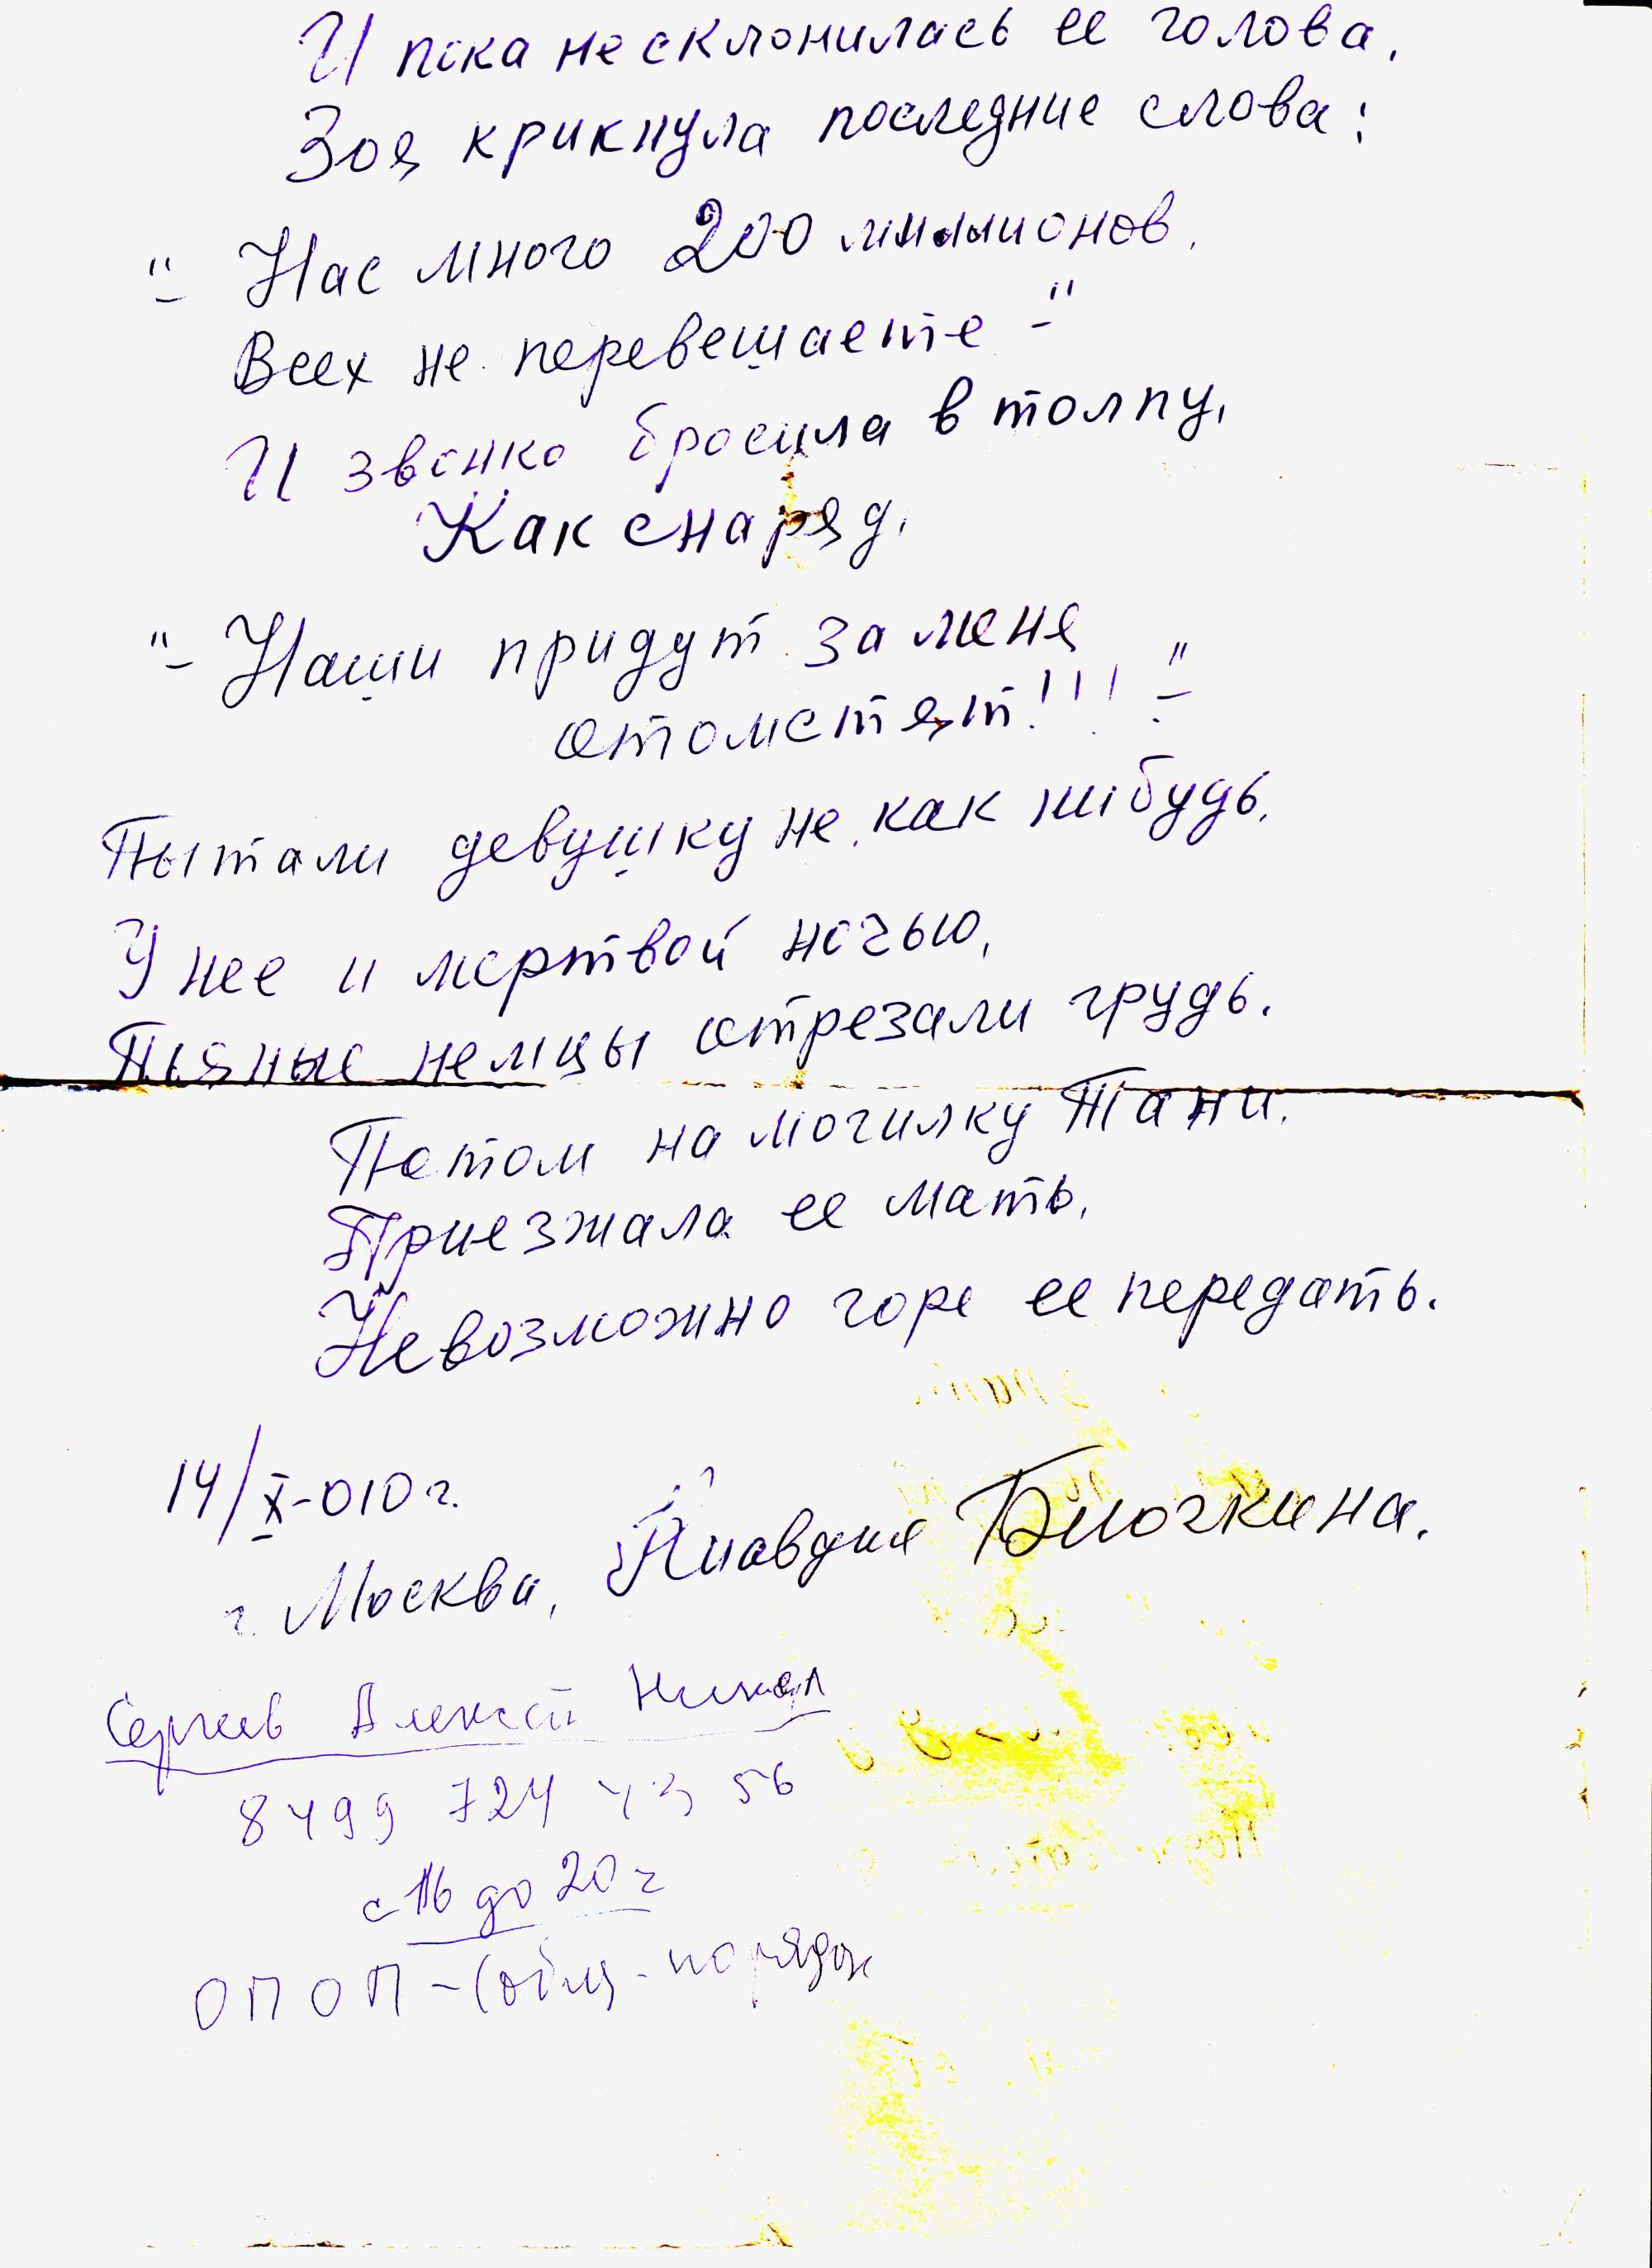 И пока не склонилась ее голова,
Зоя крикнула последние слова:
"- Нас много 200 миллионов,
Всех не перевешаете -"
И звонко бросила в толпу,
Как снаряд,
"- Наши придут за меня
отомстят!!! -"
Пытали девушку не как нибудь,
У нее и мертвой ночью,
Пьяные немцы отрезали грудь.
Потом на могилку Тани,
Приезжала ее мать,
Невозможно горе ее передать.
14/X-010 г.
г. Москва, Клавдия Блочкина.
Сергеев Алексей Никол
8499 724 43 56
с 16 до 20 ч
ОПОП - (общ. порядок